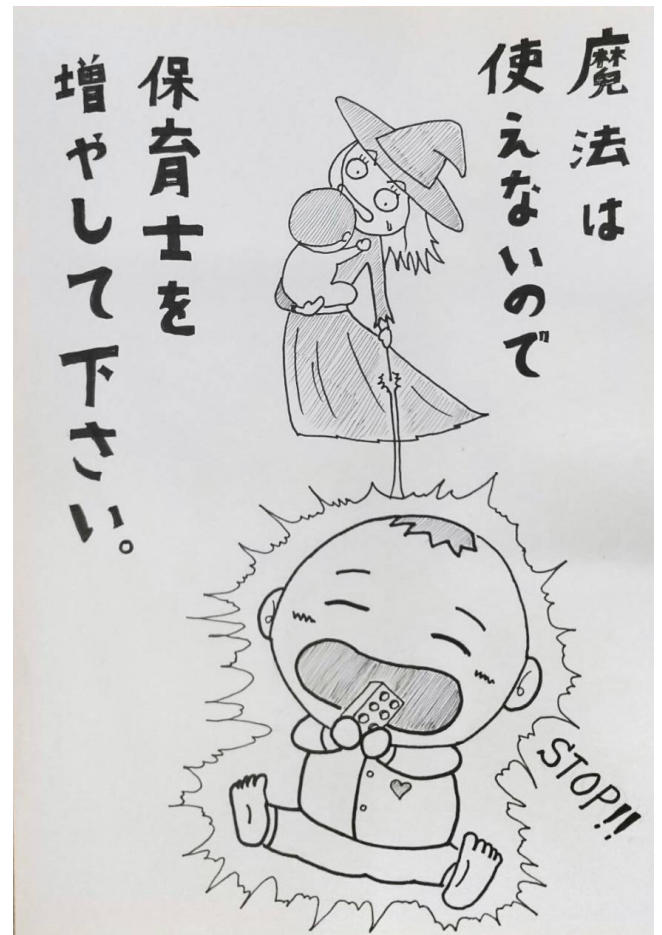 魔法は
使えないので
保育士を
増やして下さい。
STOP!!